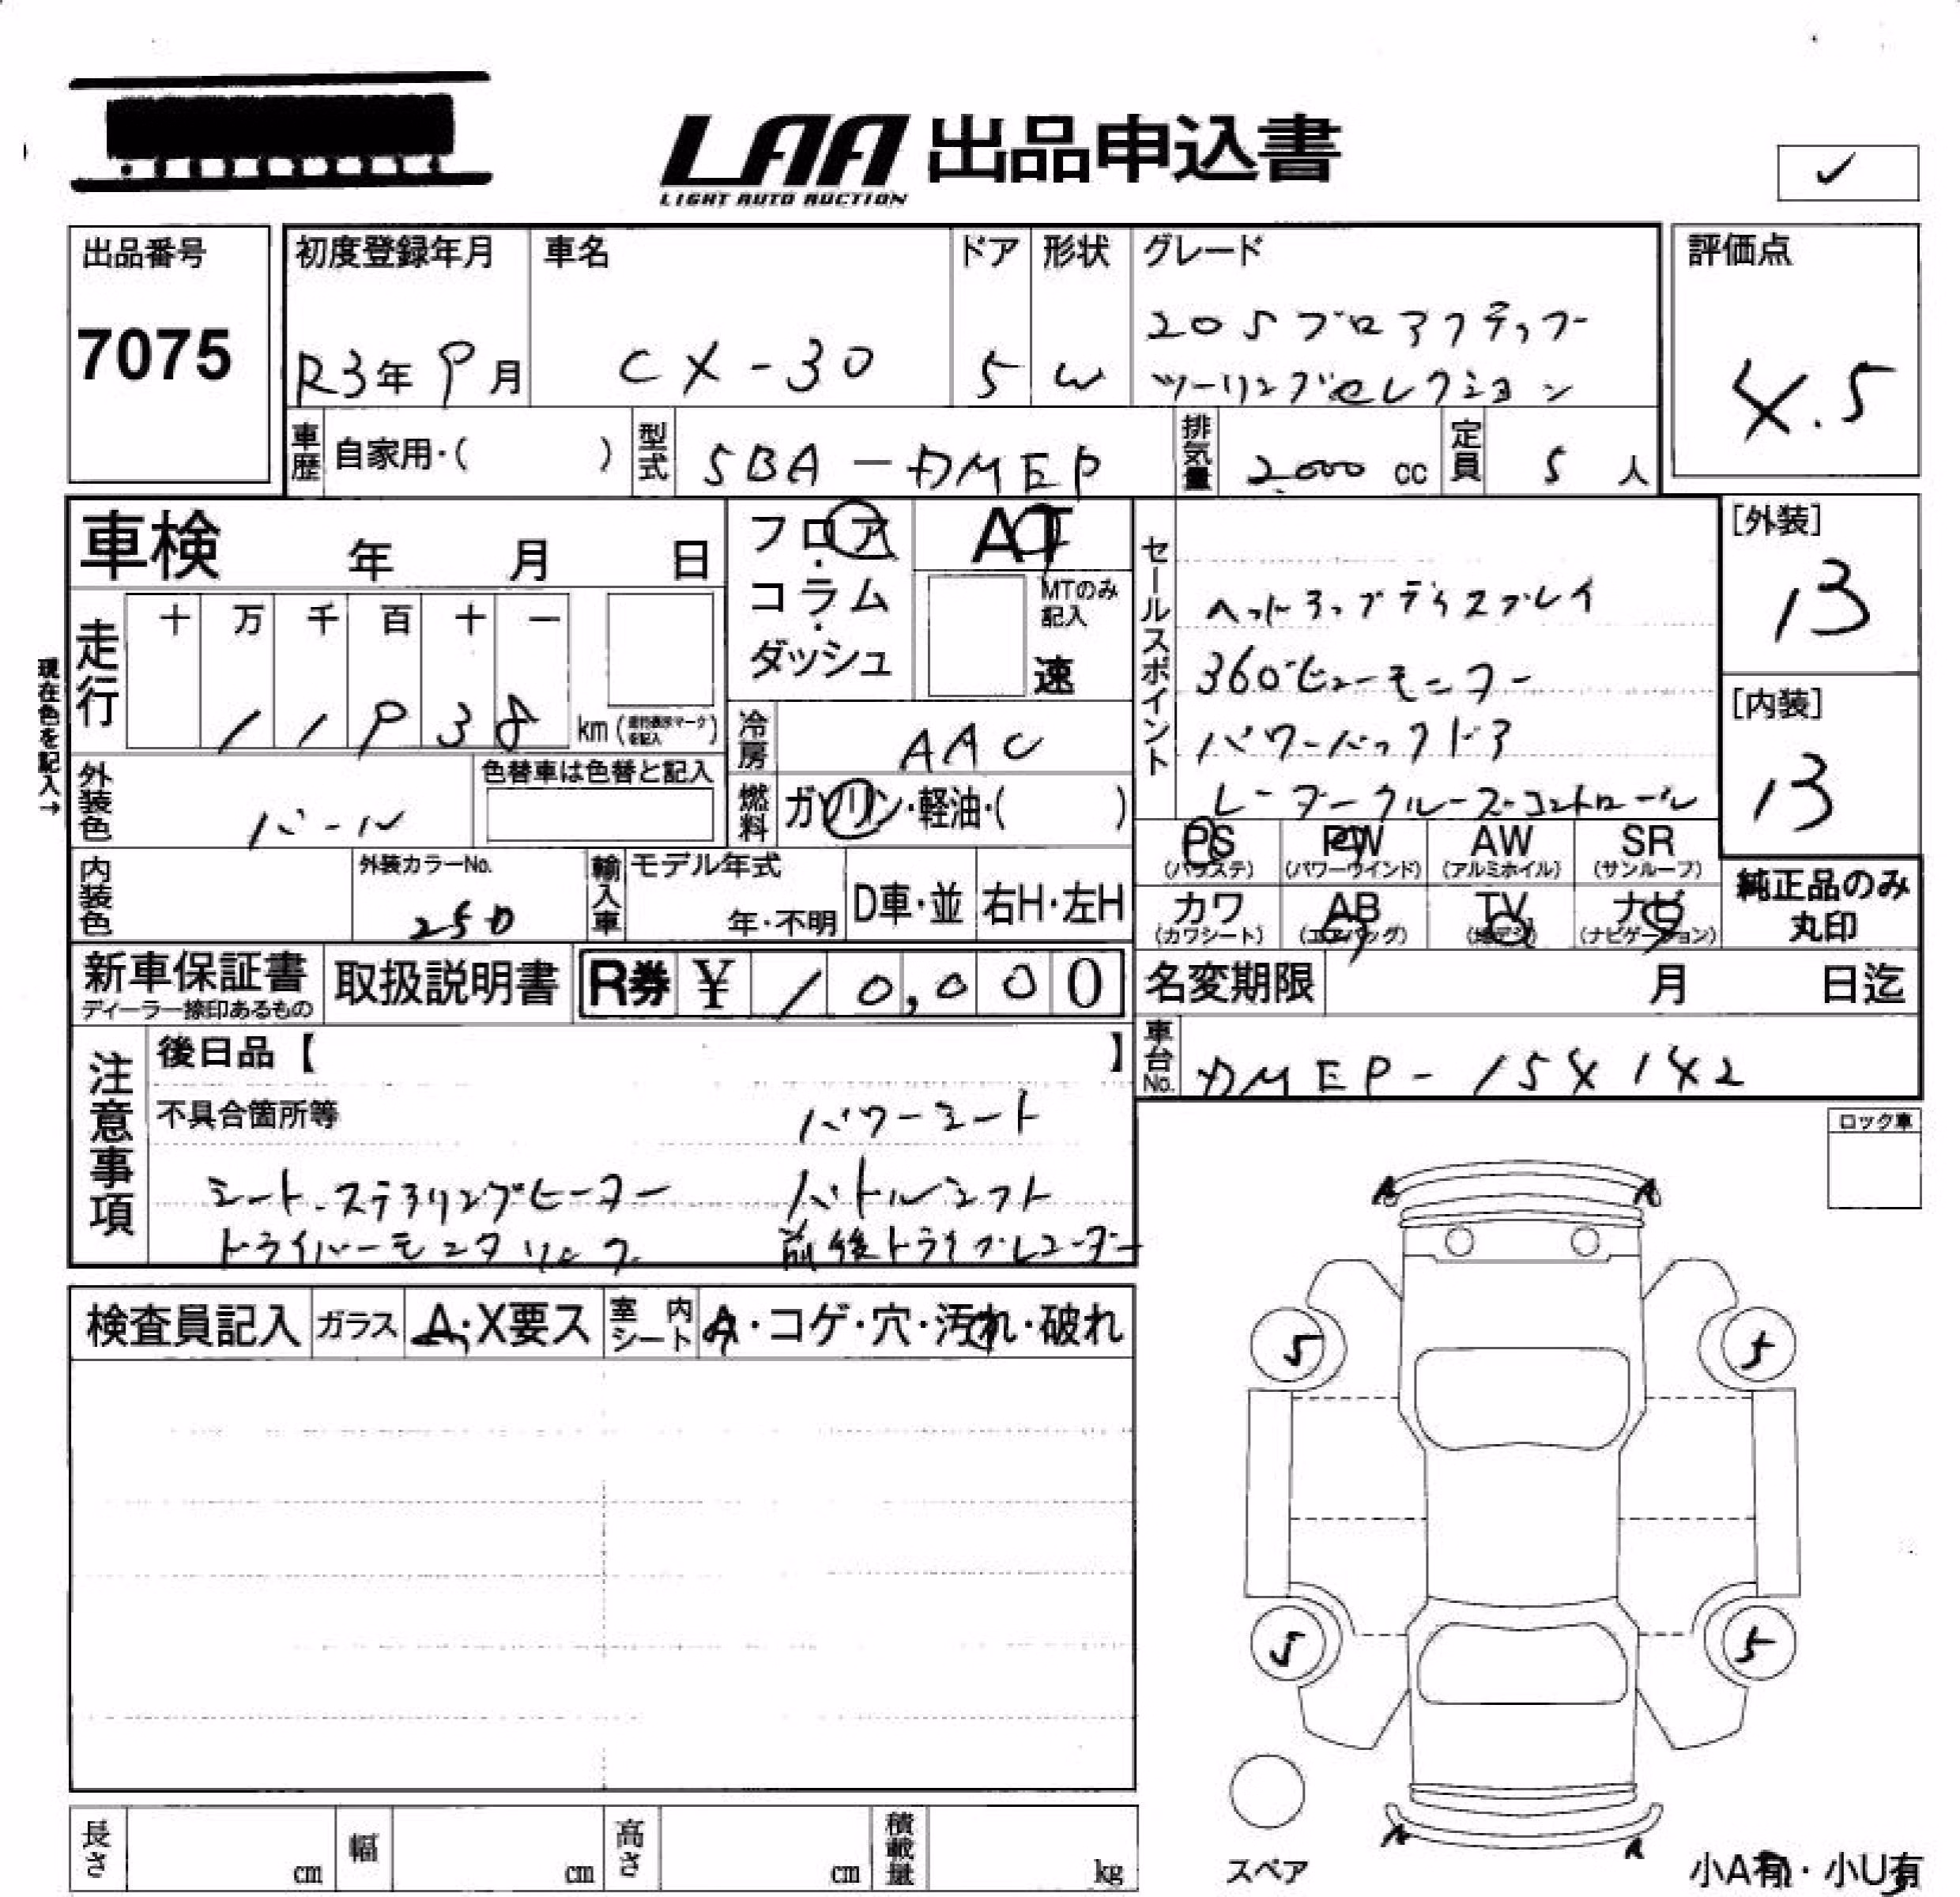 LAA 出品申込書
LIGHT AUTO AUCTION
✓
出品番号
7075
初度登録年月
R3年9月
車名
CX-30
ドア
5
形状
W
グレード
20Sプロアクティブ
ツーリングセレクション
評価点
4.5
車歴 自家用・( )
型式 5BA-DMEP
排気量 2,000 cc
定員 5 人
車検 年 月 日
フロア・コラム・ダッシュ
AT
MTのみ記入
速
セールスポイント
ヘットアップディスプレイ
360°ビューモニター
パワーバックドア
レーダークルーズコントロール
[外装]
13
[内装]
13
現在色を記入→
走行 十 万 千 百 十 一
11938 km
冷房 AAC
燃料 ガソリン・軽油・( )
外装色 パール
色替車は色替と記入
PS (パワステ) PW (パワーウインド) AW (アルミホイル) SR (サンルーフ)
カワ (カワシート) AB (エアバッグ) TV (地デジ) ナビ (ナビゲーション)
純正品のみ丸印
内装色
外装カラーNo.
25D
輸入車 モデル年式
年・不明
D車・並 右H・左H
新車保証書
ディーラー捺印あるもの
取扱説明書
R券 ¥ 10,000
名変期限 月 日迄
車台No. DMEP-154142
注意事項
後日品【 】
不具合箇所等
パワーシート
シート.ステアリングヒーター パドルシフト
ドライバーモニタリング 前後ドライブレコーダー
ロック車
検査員記入 ガラス A・X要ス 室内シート A・コゲ・穴・汚れ・破れ
A A
5 5
5 5
A A
スペア
小A有・小U有
長さ cm 幅 cm 高さ cm 積載量 kg